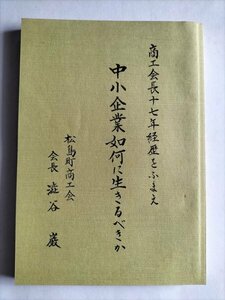 商工会長十七年経歴をふまえ
中小企業如何に生きるべきか
松島町商工会
会長 澁谷 巌